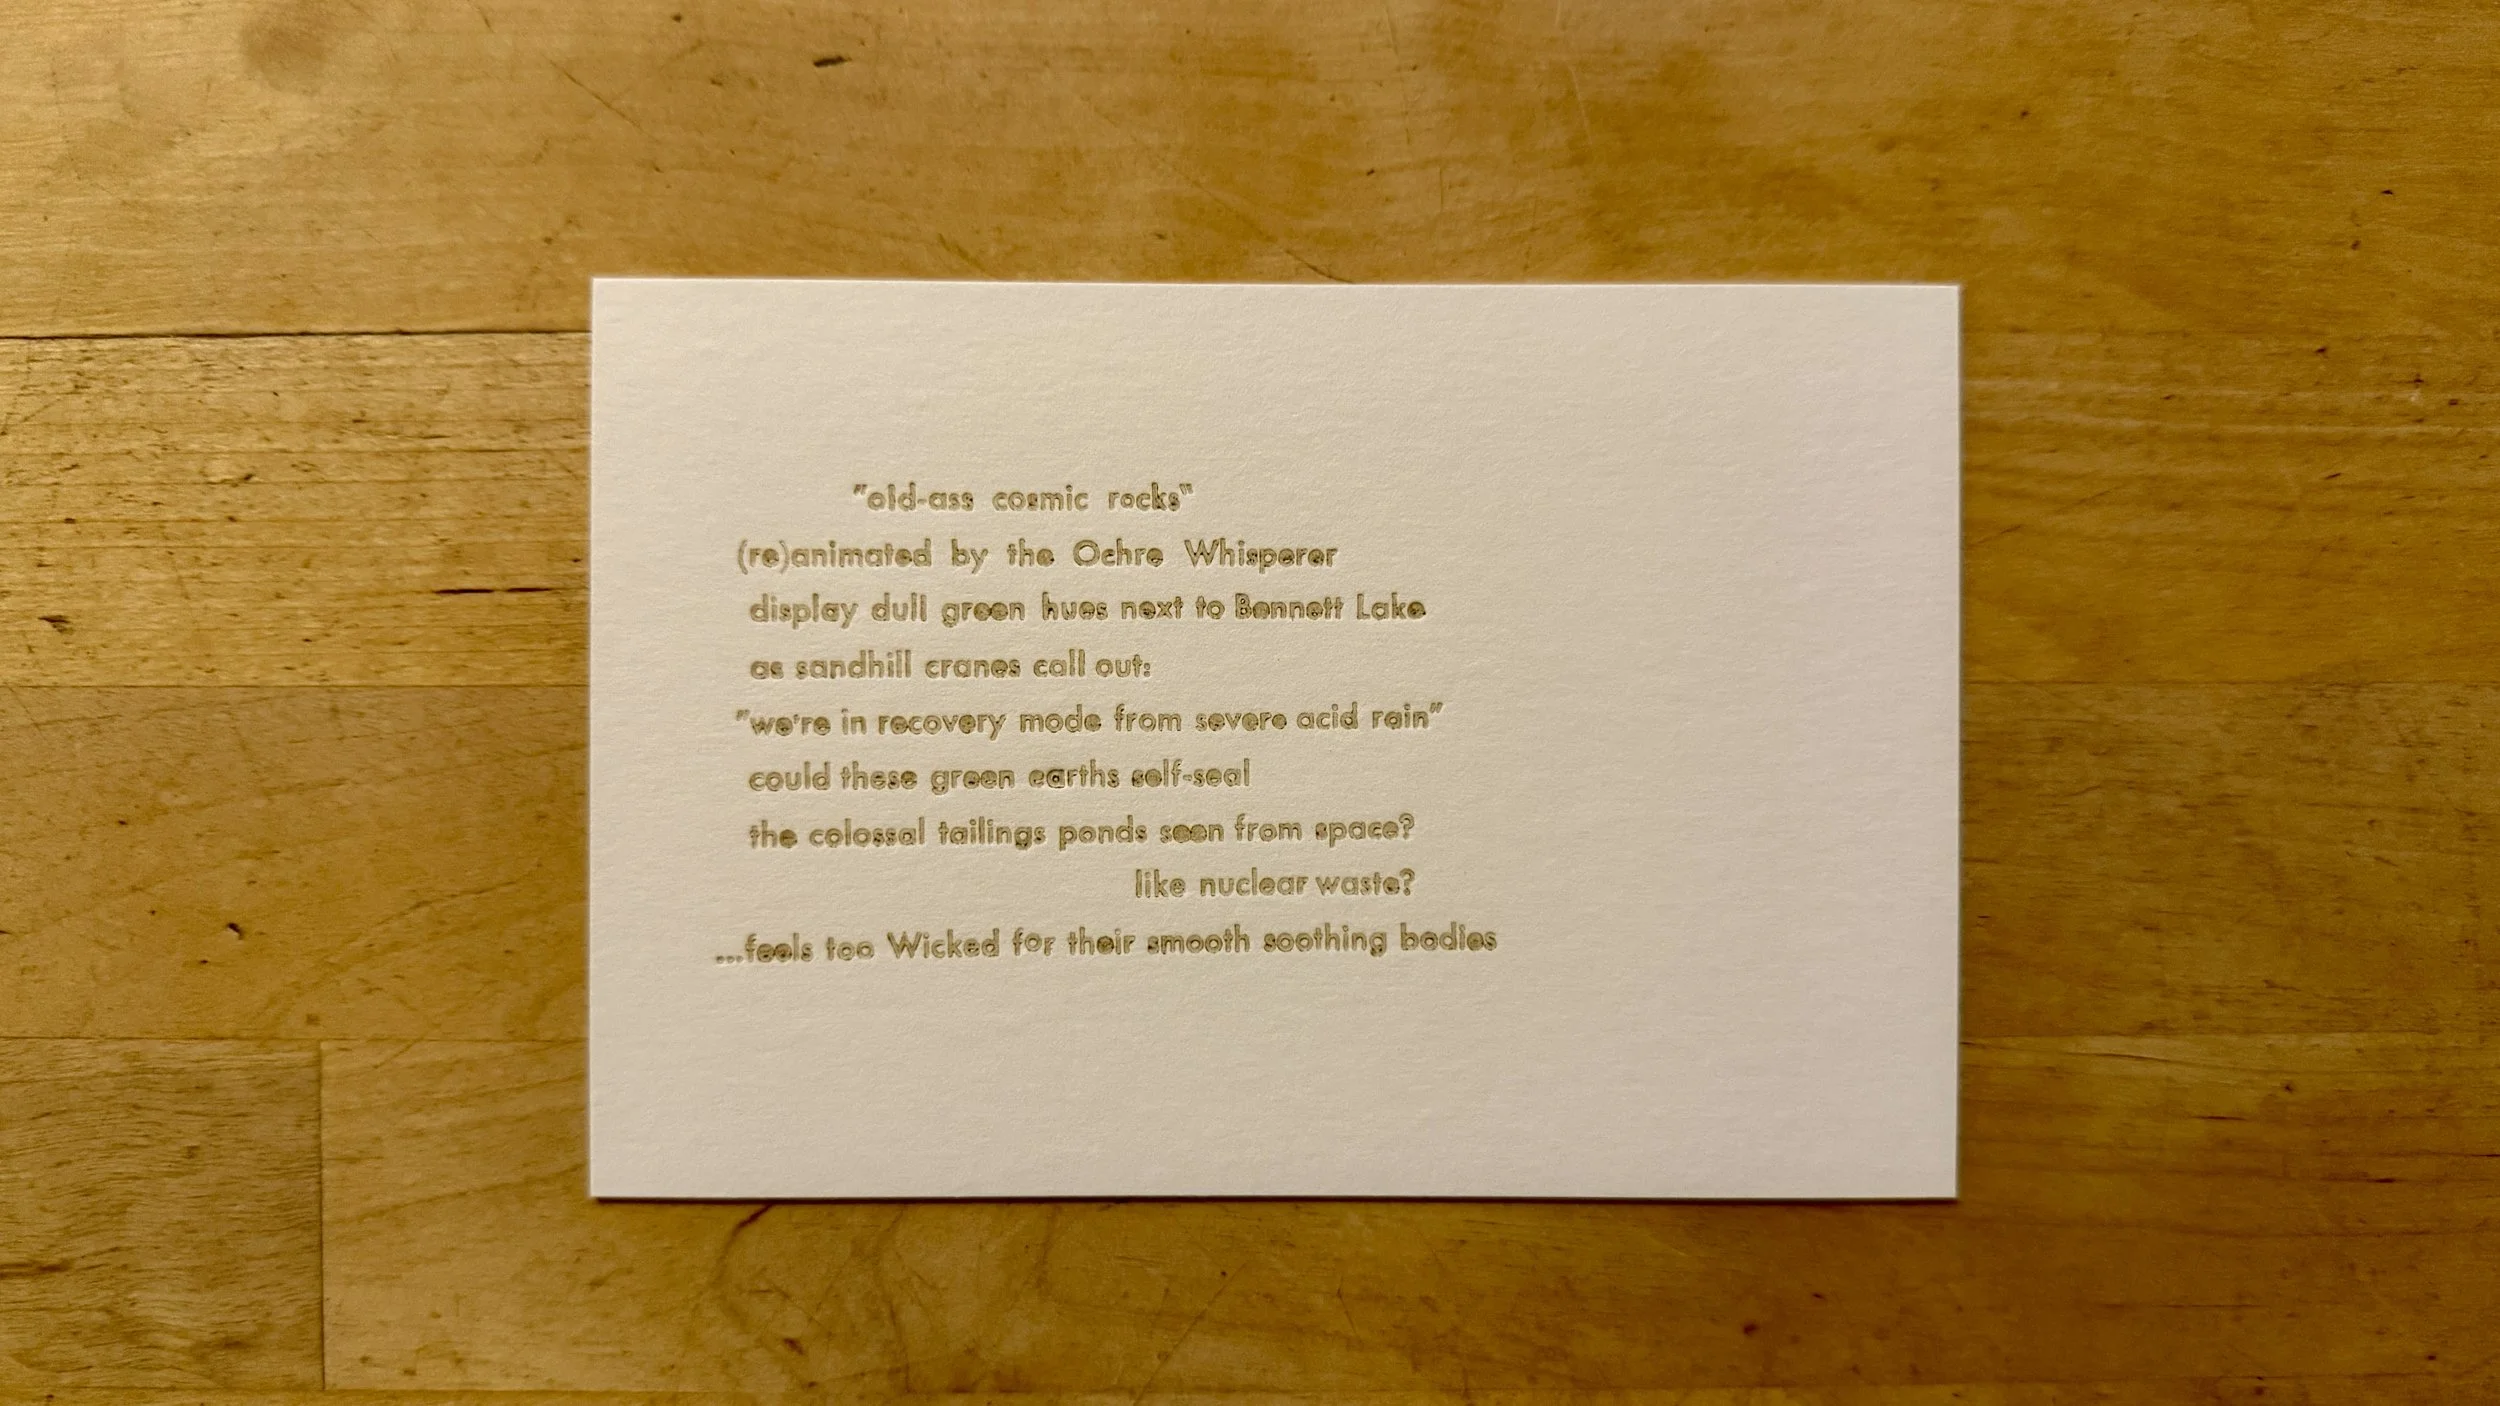 "old-ass cosmic rocks"
(re)animated by the Ochre Whisperer
display dull green hues next to Bennett Lake
as sandhill cranes call out:
"we're in recovery mode from severe acid rain"
could these green earths self-seal
the colossal tailings ponds seen from space?
like nuclear waste?
...feels too Wicked for their smooth soothing bodies